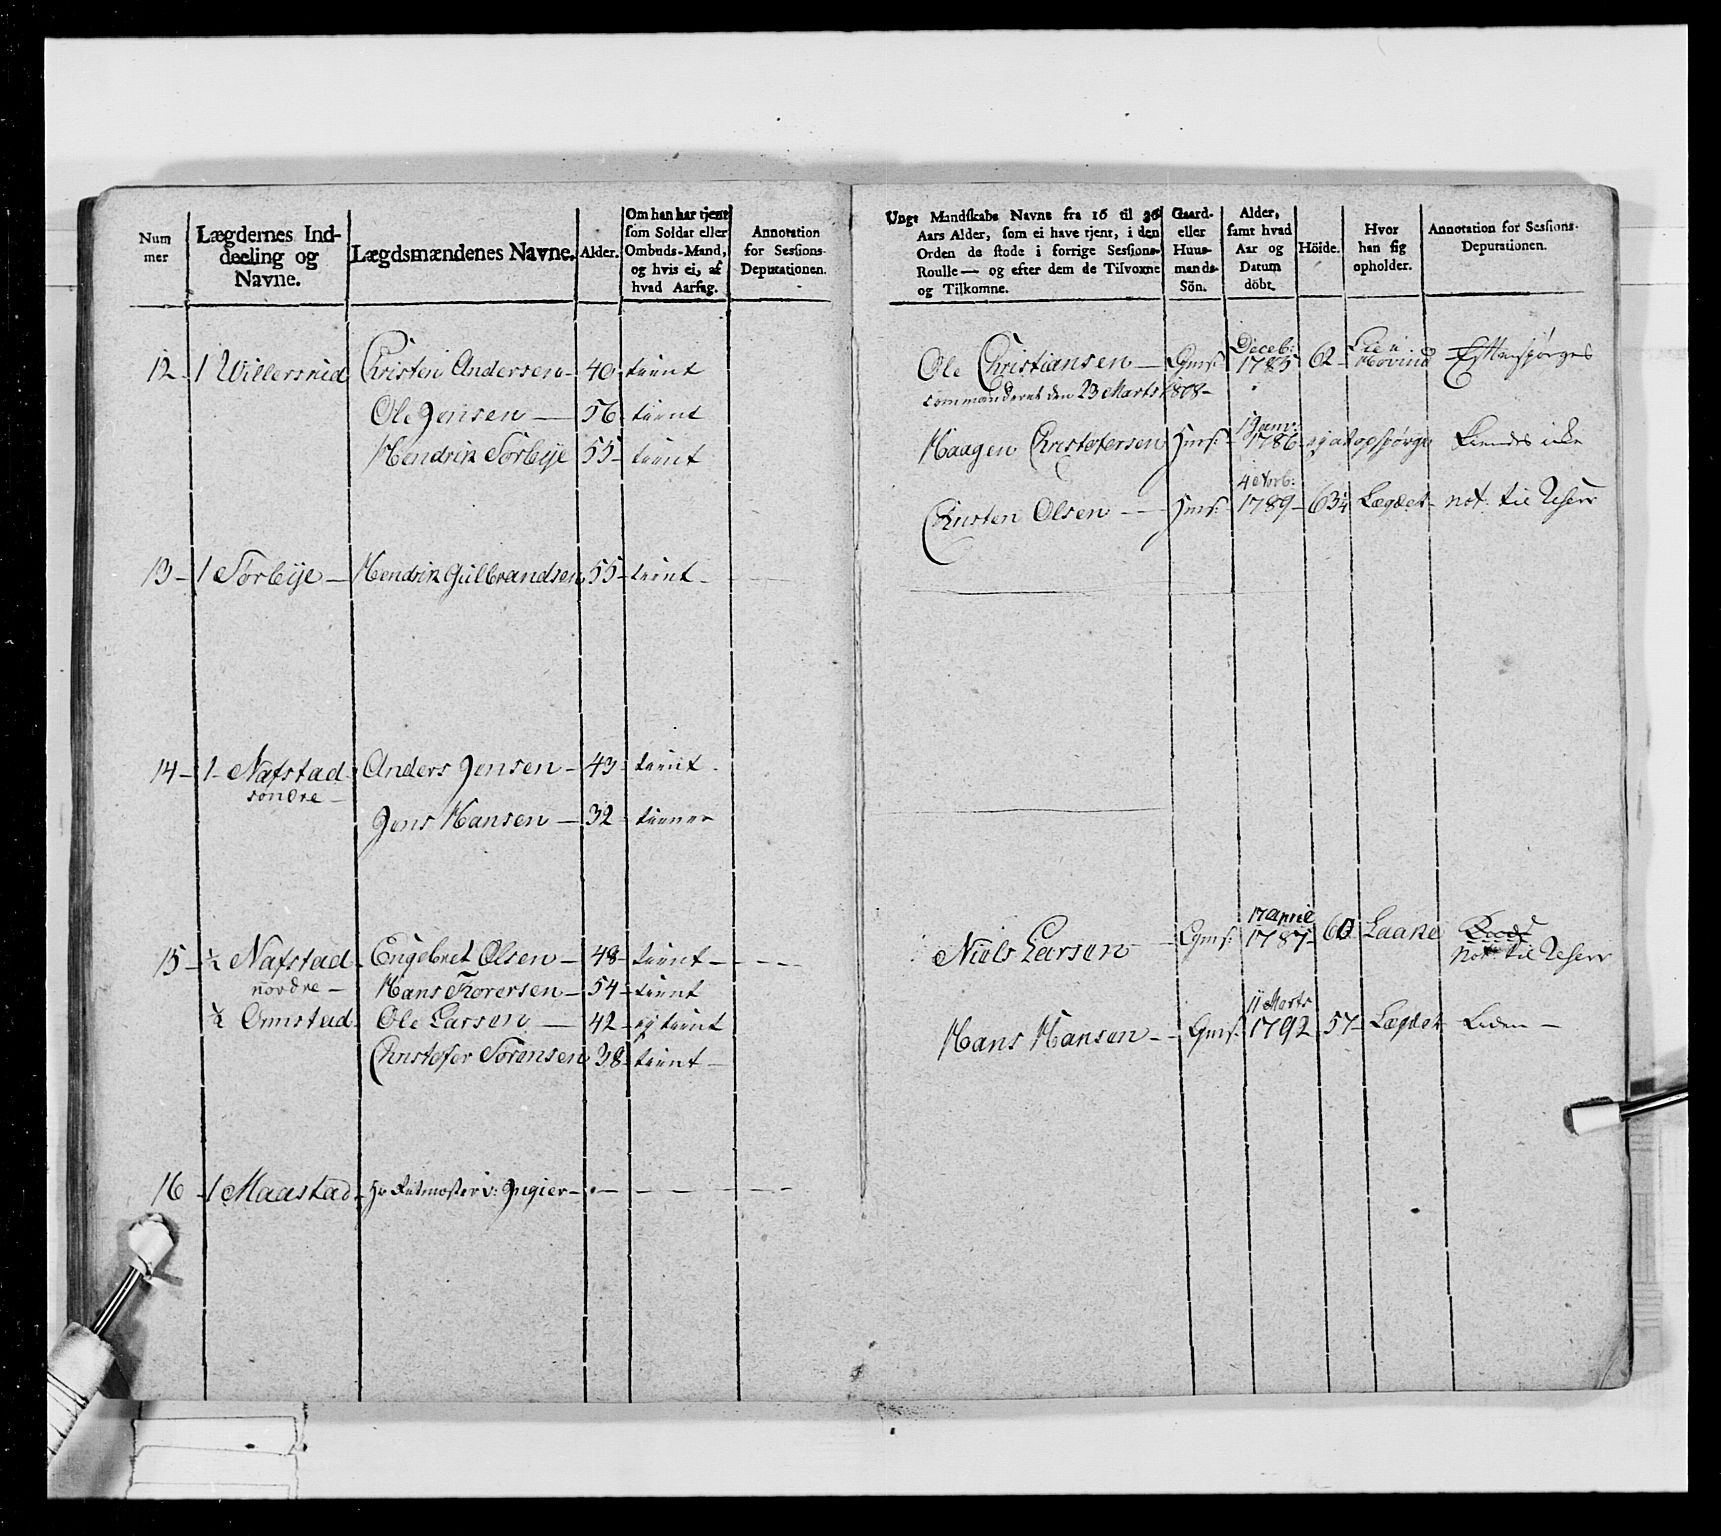 Num
mer
Lægdernes Ind-
deeling og
Navne.
Lægdsmændenes Navne.
Alder.
Om han har tjent
som Soldat eller
Ombuds-Mand,
og hvis ei, af
hvad Aarsag.
Annotation
for Sessions-
Deputationen.
12 - 1 Willersrud Christen Andersen - 40 - tient
Ole Jensen — 56 - tient
Hendrik Sørbye 55 - tient
13 - 1 Sørbye — Hendrik Gulbrandsen 55 - tient -
14 - 1 - Nafstad Anders Jensen - 43 - tient -
søndre -
Jens Hansen — 32 - tiener
15 - ½ Nafstad Engebret Olsen - 48 - tient -
nordre - Hans Torersen - 54 - tient
½ Ormstad Ole Larsen — 42 - ej tient
Christofer Sørensen 38 - tient -
16 - 1 Maastad - Hr Ritmester v: Ingier -
Unge Mandskabs Navne fra 16 til 36
Aars Alder, som ei have tjent, i den
Orden de stode i forrige Sessions-
Roulle — og efter dem de Tilvoxne
og Tilkomne.
Gaard-
eller
Huus-
mands-
Sön.
Alder,
samt hvad
Aar og
Datum
döbt.
Höide.
Hvor
han sig
opholder.
Annotation for Sessions-
Deputationen.
Ole Christiansen — Gms: Deceb: 1785 62 - Hovind Efterspørges
commanderet den 23 Marts 1808 -
Haagen Christofersen Hms: 1786 - ej at opspørge kiendes ikke
Christen Olsen — Hms: 4 Novb: 1789 - 63¼ Lægdet - not. til Reserv
Niels Larsen - Gms: 17 April 1787 - 60 Laake
not til Reserv
Hans Hansen - Gms: 11 Marts 1792 57 - Lægdet - Liden -